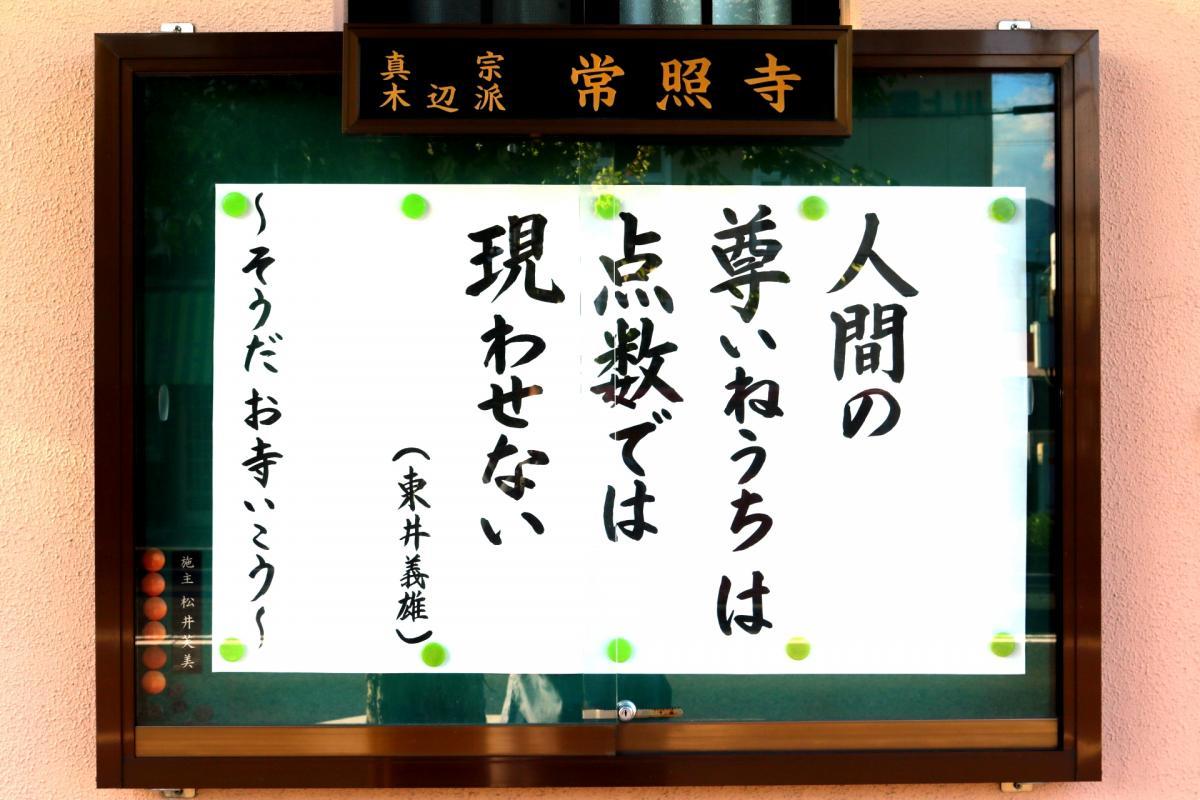 真宗
木辺派
常照寺
人間の
尊いねうちは
点数では
現わせない
（東井義雄）
～そうだ お寺いこう～
施主 松井芙美